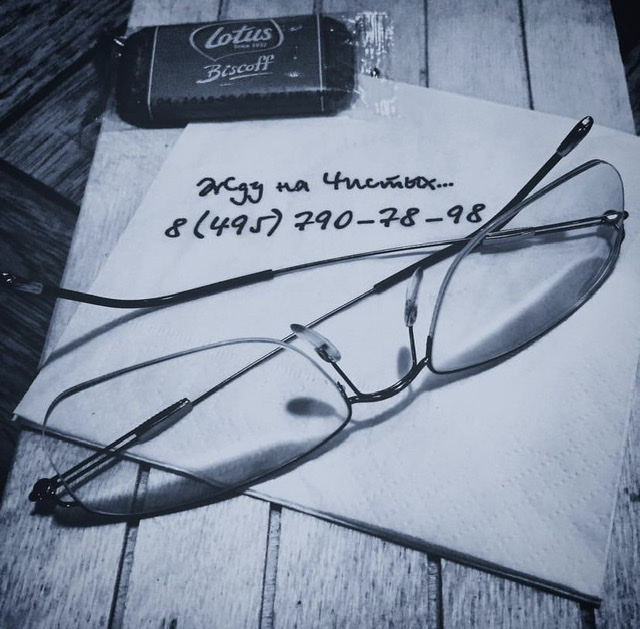 Lotus
Since 1932
Biscoff
Жду на Чистых...
8 (495) 790-78-98